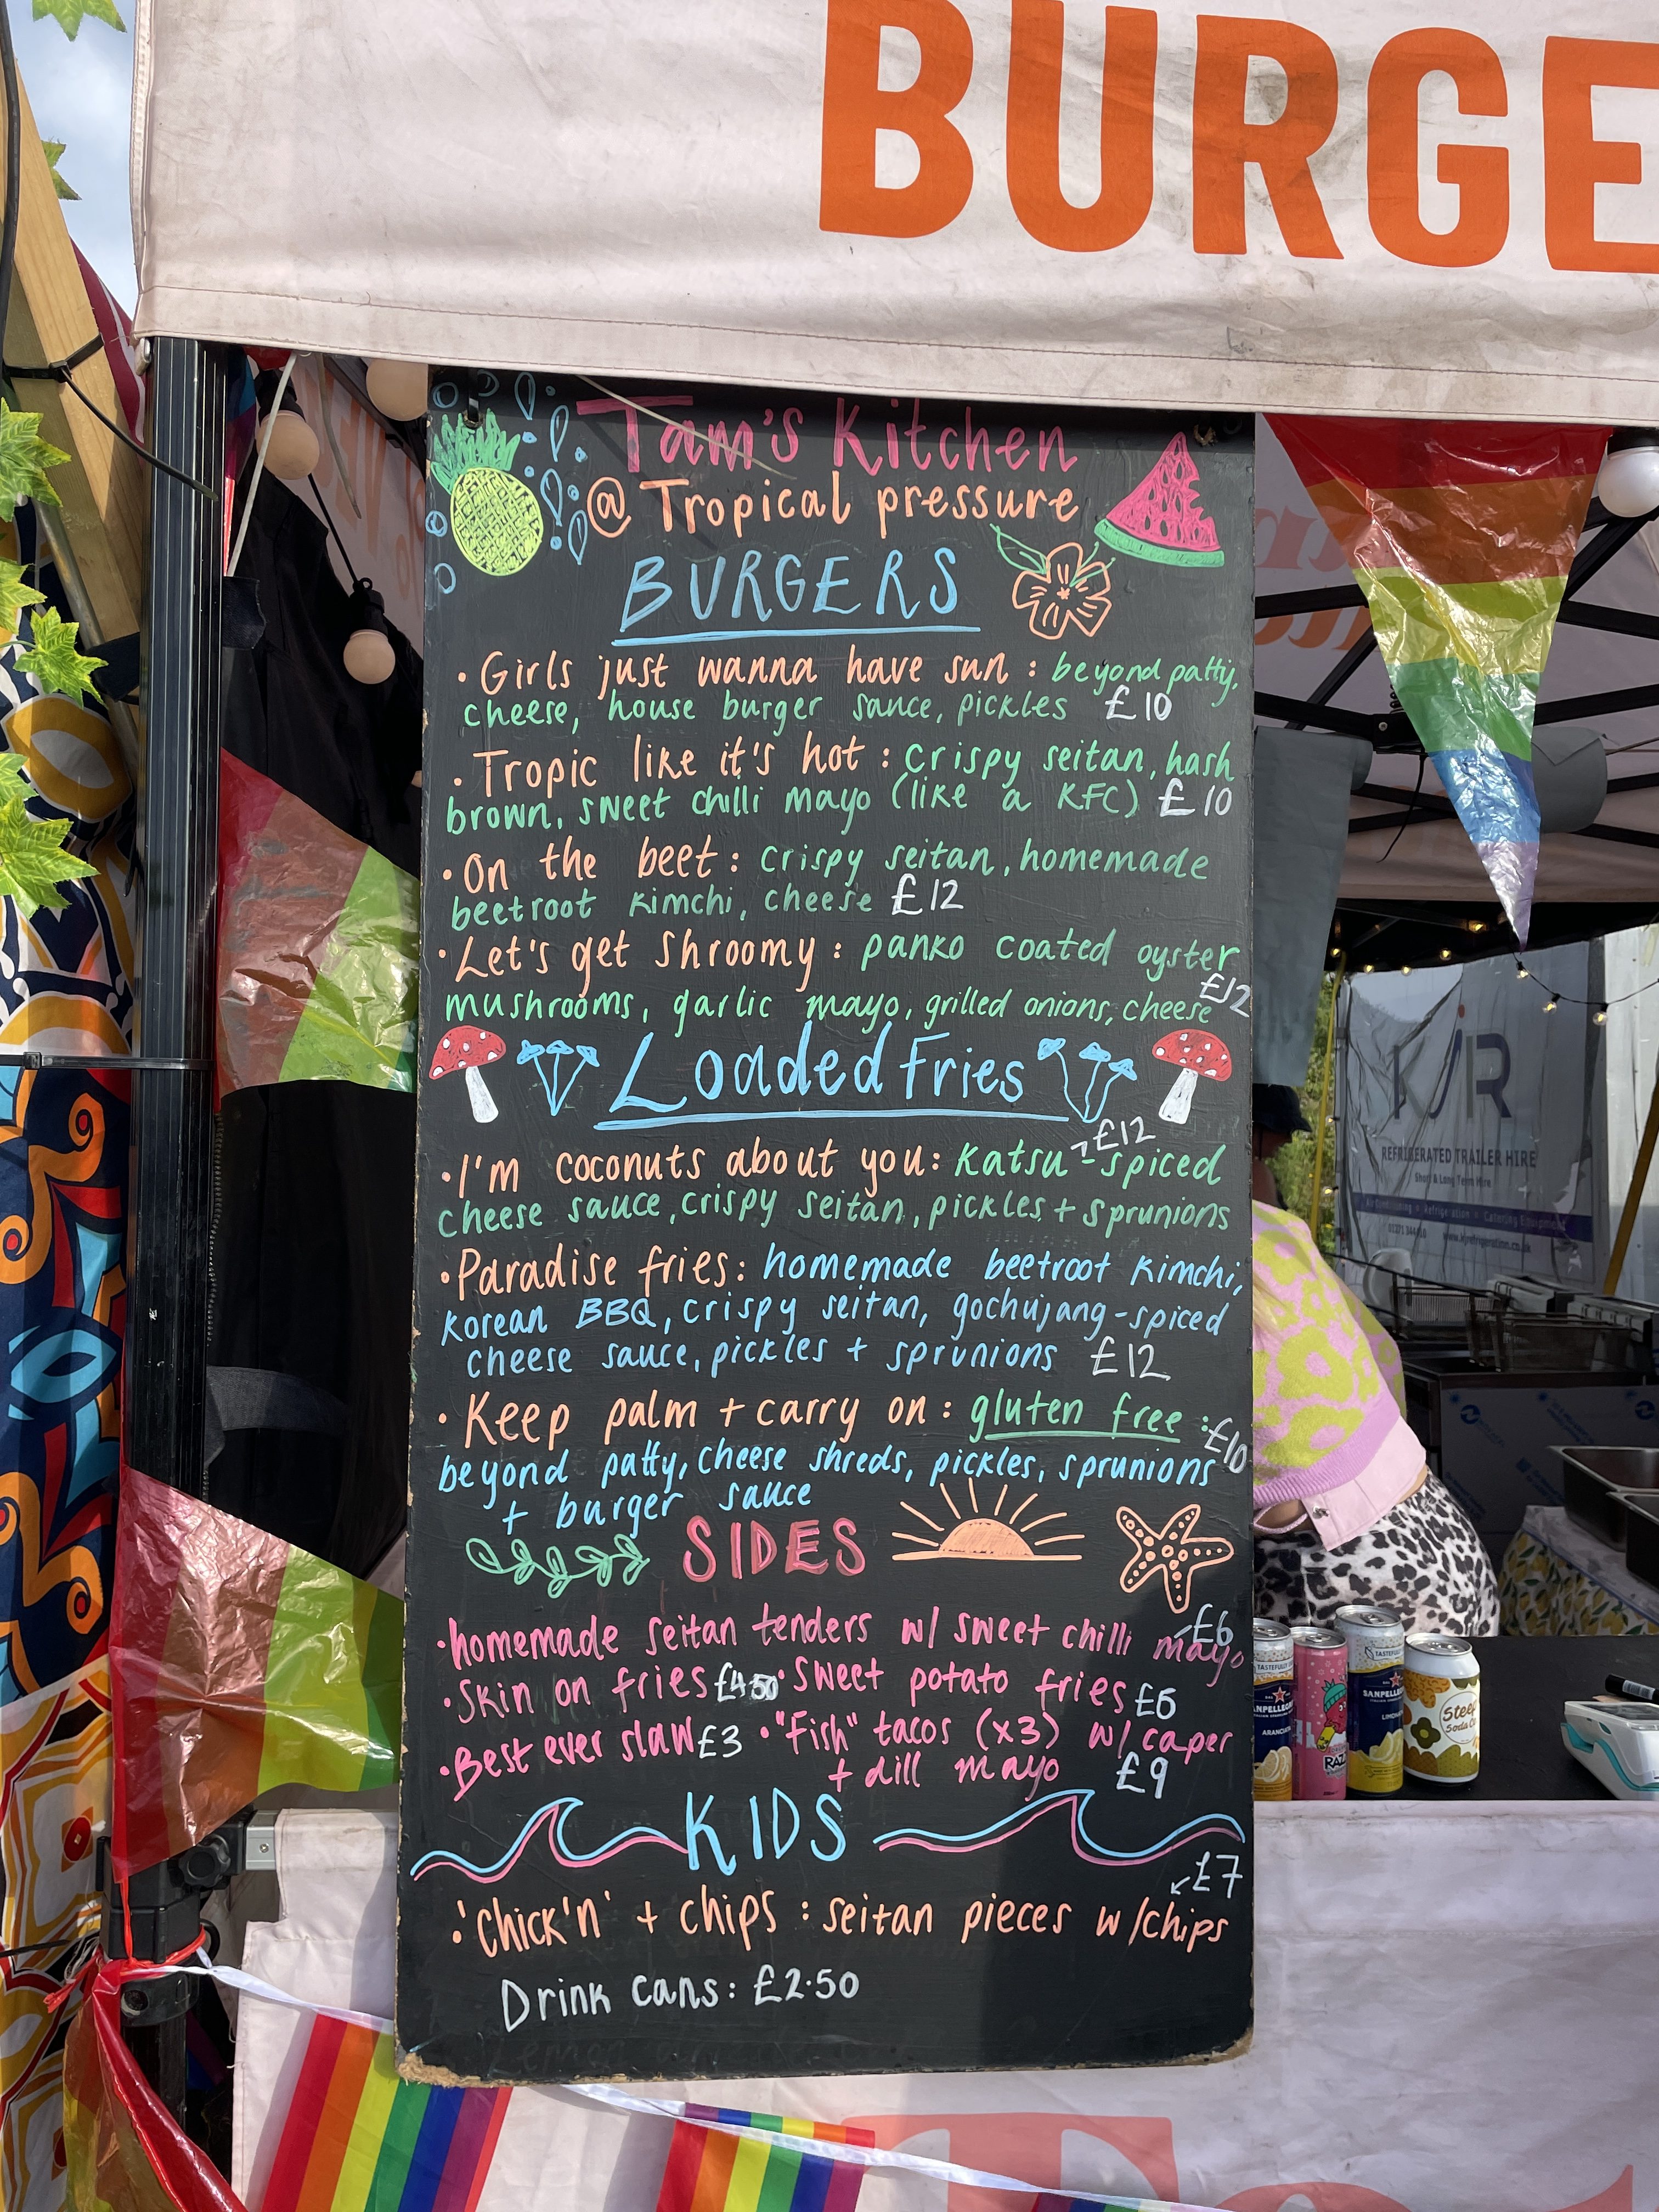 BURGE
Tam's Kitchen
@ Tropical pressure
BURGERS
• Girls just wanna have sun : beyond patty,
cheese, house burger sauce, pickles £10
• Tropic like it's hot : crispy seitan, hash
brown, sweet chilli mayo (like a KFC) £10
• On the beet : crispy seitan, homemade
beetroot kimchi, cheese £12
• Let's get shroomy : panko coated oyster
mushrooms, garlic mayo, grilled onions, cheese £12
Loaded Fries
• I'm coconuts about you: katsu-spiced £12
cheese sauce, crispy seitan, pickles + sprunions
• Paradise fries: homemade beetroot kimchi,
korean BBQ, crispy seitan, gochujang-spiced
cheese sauce, pickles + sprunions £12
• Keep palm + carry on : gluten free : £10
beyond patty, cheese shreds, pickles, sprunions
+ burger sauce
SIDES
• homemade seitan tenders w/ sweet chilli mayo £6
• Skin on fries £4.50 • Sweet potato fries
• Best ever slaw £3 • "Fish" tacos (x3) w/ caper
+ dill mayo £9
KIDS
£7
• 'Chick'n' + chips : seitan pieces w/chips
Drink cans: £2.50
KJR
REFRIGERATED TRAILER HIRE
Short & Long Term Hire
www.kjrrefrigeration.co.uk
TASTEFULLY
SANPELLEGRINO
ARANCIATA
RAZZ
TASTEFULLY
SANPELLEGRINO
LIMONATA
Steep
Soda Co